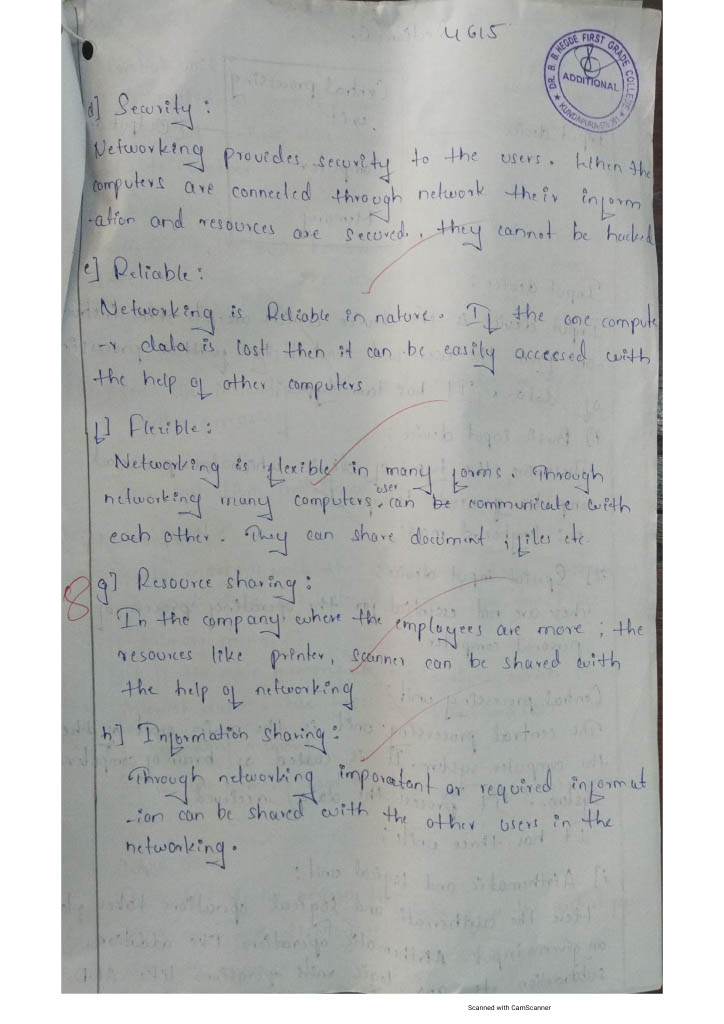 4615
DR. B. B. HEGDE FIRST GRADE COLLEGE
ADDITIONAL
KUNDAPURA-576 201
d] Security :
Networking provides security to the users. When the
computers are connected through network their inform
-ation and resources are secured, they cannot be hacked
e] Reliable :
Networking is Reliable in nature. If the one compute
-r data is lost then it can be easily accessed with
the help of other computers
f] Flexible :
Networking is flexible in many forms. Through
networking many computers user can be communicate with
each other. They can share document, files etc
g] Resource sharing :
8
In the company where the employees are more, the
resources like printer, scanner can be shared with
the help of networking
h] Information sharing :
Through networking imporatant or required informat
-ion can be shared with the other users in the
networking.
Scanned with CamScanner